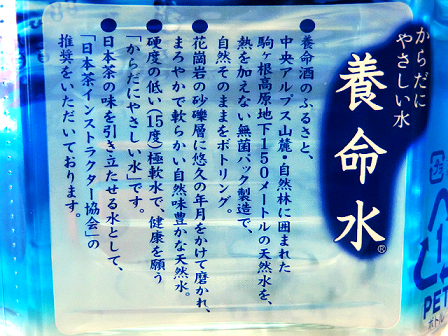 からだに
やさしい水
養命水®
●養命酒のふるさと、
中央アルプス山麓・自然林に囲まれた
駒ヶ根高原地下150メートルの天然水を、
熱を加えない無菌パック製造で、
自然そのままをボトリング。
●花崗岩の砂礫層に悠久の年月をかけて磨かれ、
まろやかで軟らかい自然味豊かな天然水。
●硬度の低い(15度)極軟水で、健康を願う
「からだにやさしい水」です。
●日本茶の味を引き立たせる水として、
「日本茶インストラクター協会」の
推奨をいただいております。
PET